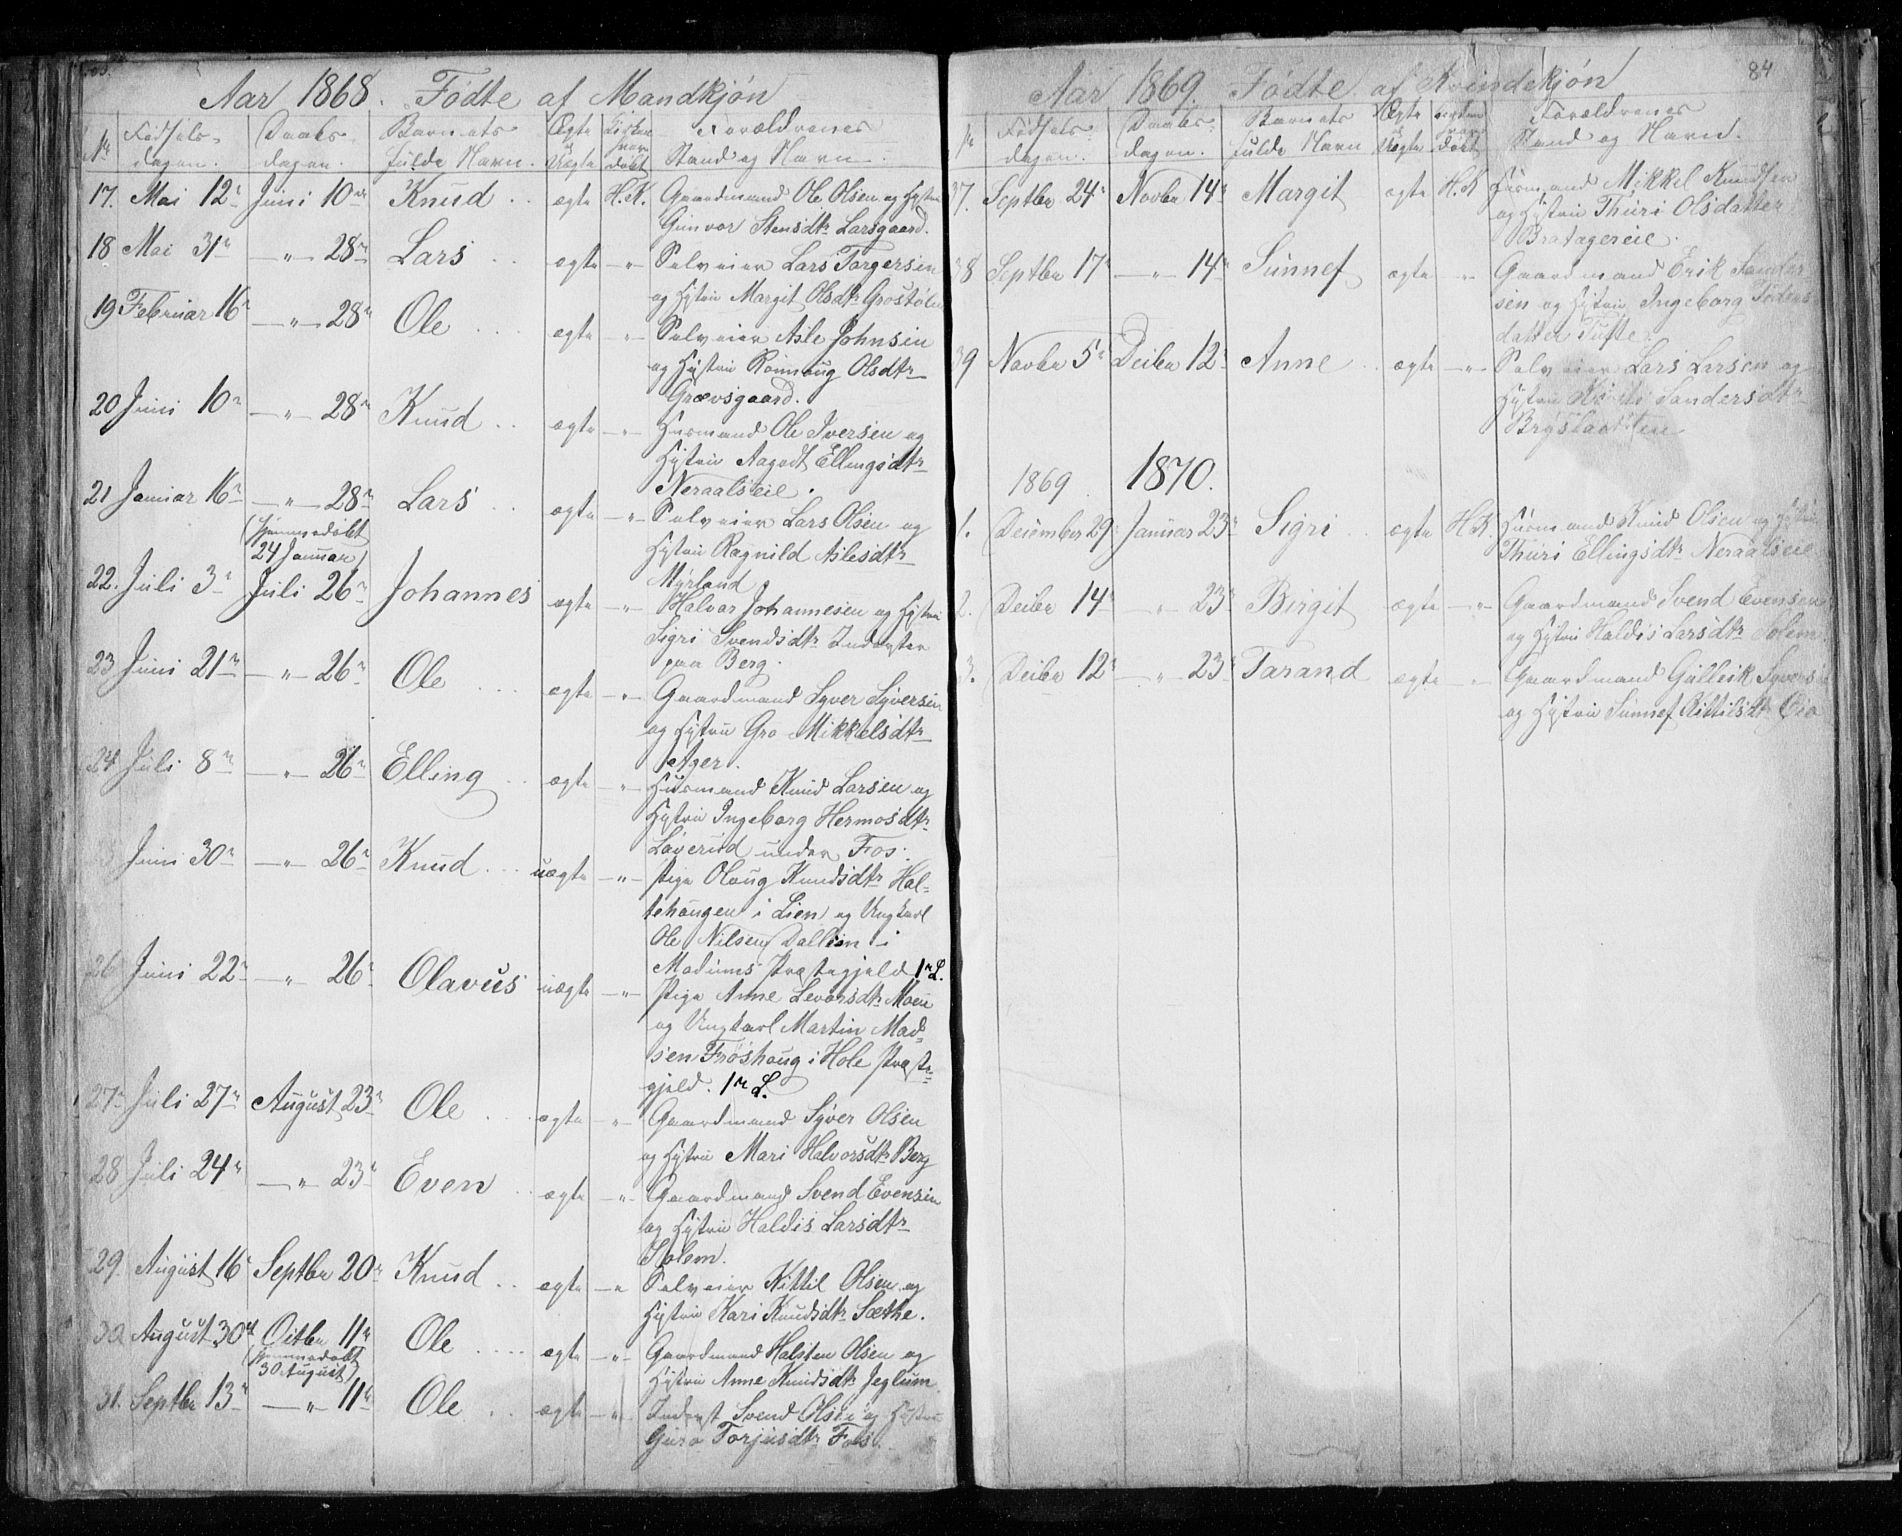 Aar 1868. Fødte af Mandkjøn
No Fødsels-dagen. Daabs-dagen. Barnets fulde Navn. Ægte og Uægte Forældrenes Stand og Navn.
17. Mai 12te Juni 10de Knud ægte H.K. Gaardmand Ole Olsen og Hustru
Gunvor Stensdtr Larsgaard.
18 Mai 31te — " — 28de Lars ægte — " — Selveier Lars Torgersen
og Hustru Margit Olsdtr Grostølen
19 Februar 16de — " — 28de Ole ægte — " — Selveier Asle Johnsen
og Hustru Rönnaug Olsdtr
Grævsgaard.
20 Juni 10de — " — 28de Knud ægte — " — Husmand Ole Iversen og
Hustru Aagodt Ellingsdtr
Neraalseie.
21 Januar 16de — " — 28de Lars ægte — " — Selveier Lars Olsen og
(hjemmedøbt
24 Januar)
Hustru Ragnild Aslesdtr
Myrland
22. Juli 3de Juli 26de Johannes ægte — " — Halvor Johannesen og Hustru
Sigri Svendsdtr Inderster
paa Berg.
23 Juni 21de — " — 26de Ole ægte — " — Gaardmand Syver Syversen
og Hustru Gro Mikkelsdtr
Ager.
24 Juli 8de — " — 26de Elling ægte — " — Husmand Knud Larsen og
Hustru Ingeborg Hermosdtr
Løverud under Fos.
Juni 30te — " — 26de Knud uægte — " — Pige Olaug Knudsdtr Hal-
tehaugen i Lien og Ungkarl
Ole Nilsen Dallien i
Modums Præstegjeld 1te L.
26 Juni 22de — " — 26de Olavus uægte — " — Pige Anne Levorsdtr Moen
og Ungkarl Martin Mad-
sen Frøshaug i Hole Præste-
gjeld. 1te L.
27 Juli 27de August 23de Ole ægte — " — Gaardmand Syver Olsen
og Hustru Mari Halvorsdtr Berg
28 Juli 24de — " — 23de Even ægte — " — Gaardmand Svend Evensen
og Hustru Haldis Larsdtr
Solem.
29. August 16de Septbr 20de Knud ægte — " — Selveier Kittil Olsen og
Hustru Kari Knudsdtr Sæthe.
30. August 30te Octbr 11te Ole ægte — " — Gaardmand Halsten Olsen og
(hjemmedøbt
30 August)
Hustru Anne Knudsdtr Jeglum
31. Septbr 13de — " — 11te Ole ægte — " — Inderst Svend Olsen og Hustru
Guro Torjusdtr Fos.
84
Aar 1869. Fødte af Kvindekjøn
No Fødsels-dagen. Daabs-dagen. Barnets fulde Navn Ægte og Uægte Forældrenes Stand og Navn.
37. Septbr 24de Novbr 14de Margit ægte H.K Husmand Mikkel Knudsen
og Hustru Thuri Olsdatter
Bratagereie.
38 Septbr 17de — " — 14de Sünnef ægte — " — Gaardmand Erik Sander-
sen og Hustru Ingeborg
datter Tufte.
39 Novbr 5te Decbr 12te Anne ægte — " — Selveier Lars Larsen og
Hustru Kristi Sandersdtr
1869 1870.
1. December 29de Januar 23de Sigri ægte H.K. Husmand Knud Olsen og Hustru
Thuri Ellingsdtr Neraalseie
2. Decbr 14de — " — 23de Birgit ægte — " — Gaardmand Svend Evensen
og Hustru Haldis Larsdtr Solem.
3. Decbr 12te — " — 23de Tarand ægte — " — Gaardmand Gullik Syversen
og Hustru Sünnef Kittilsdtr